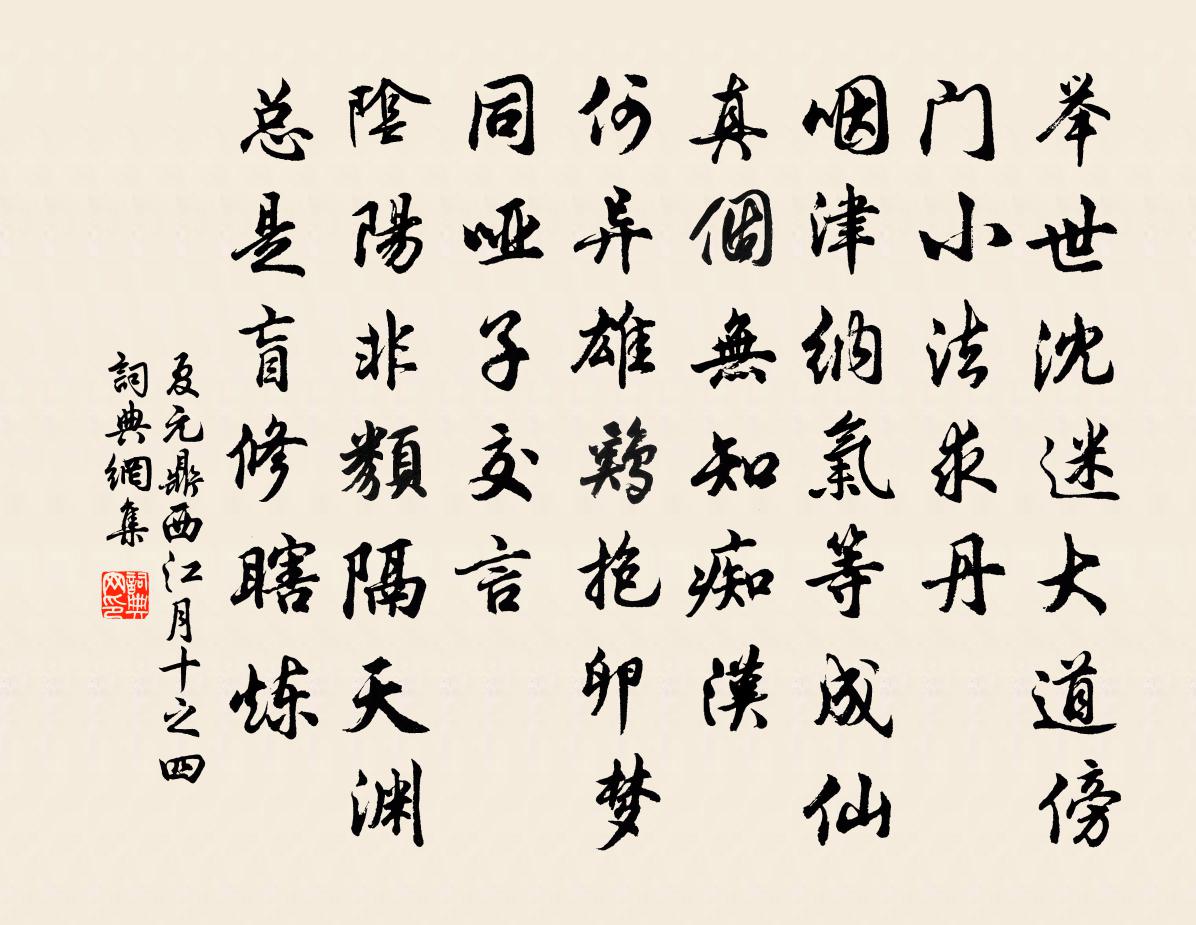 举世沈迷大道傍
门小法求丹
咽津纳氣等成仙
真個無知痴漢
何异雄鷄抱卵梦
同哑子交言
陰陽非類隔天渊
总是盲修瞎炼
夏元鼎西江月十之四
詞典網集
詞典网印